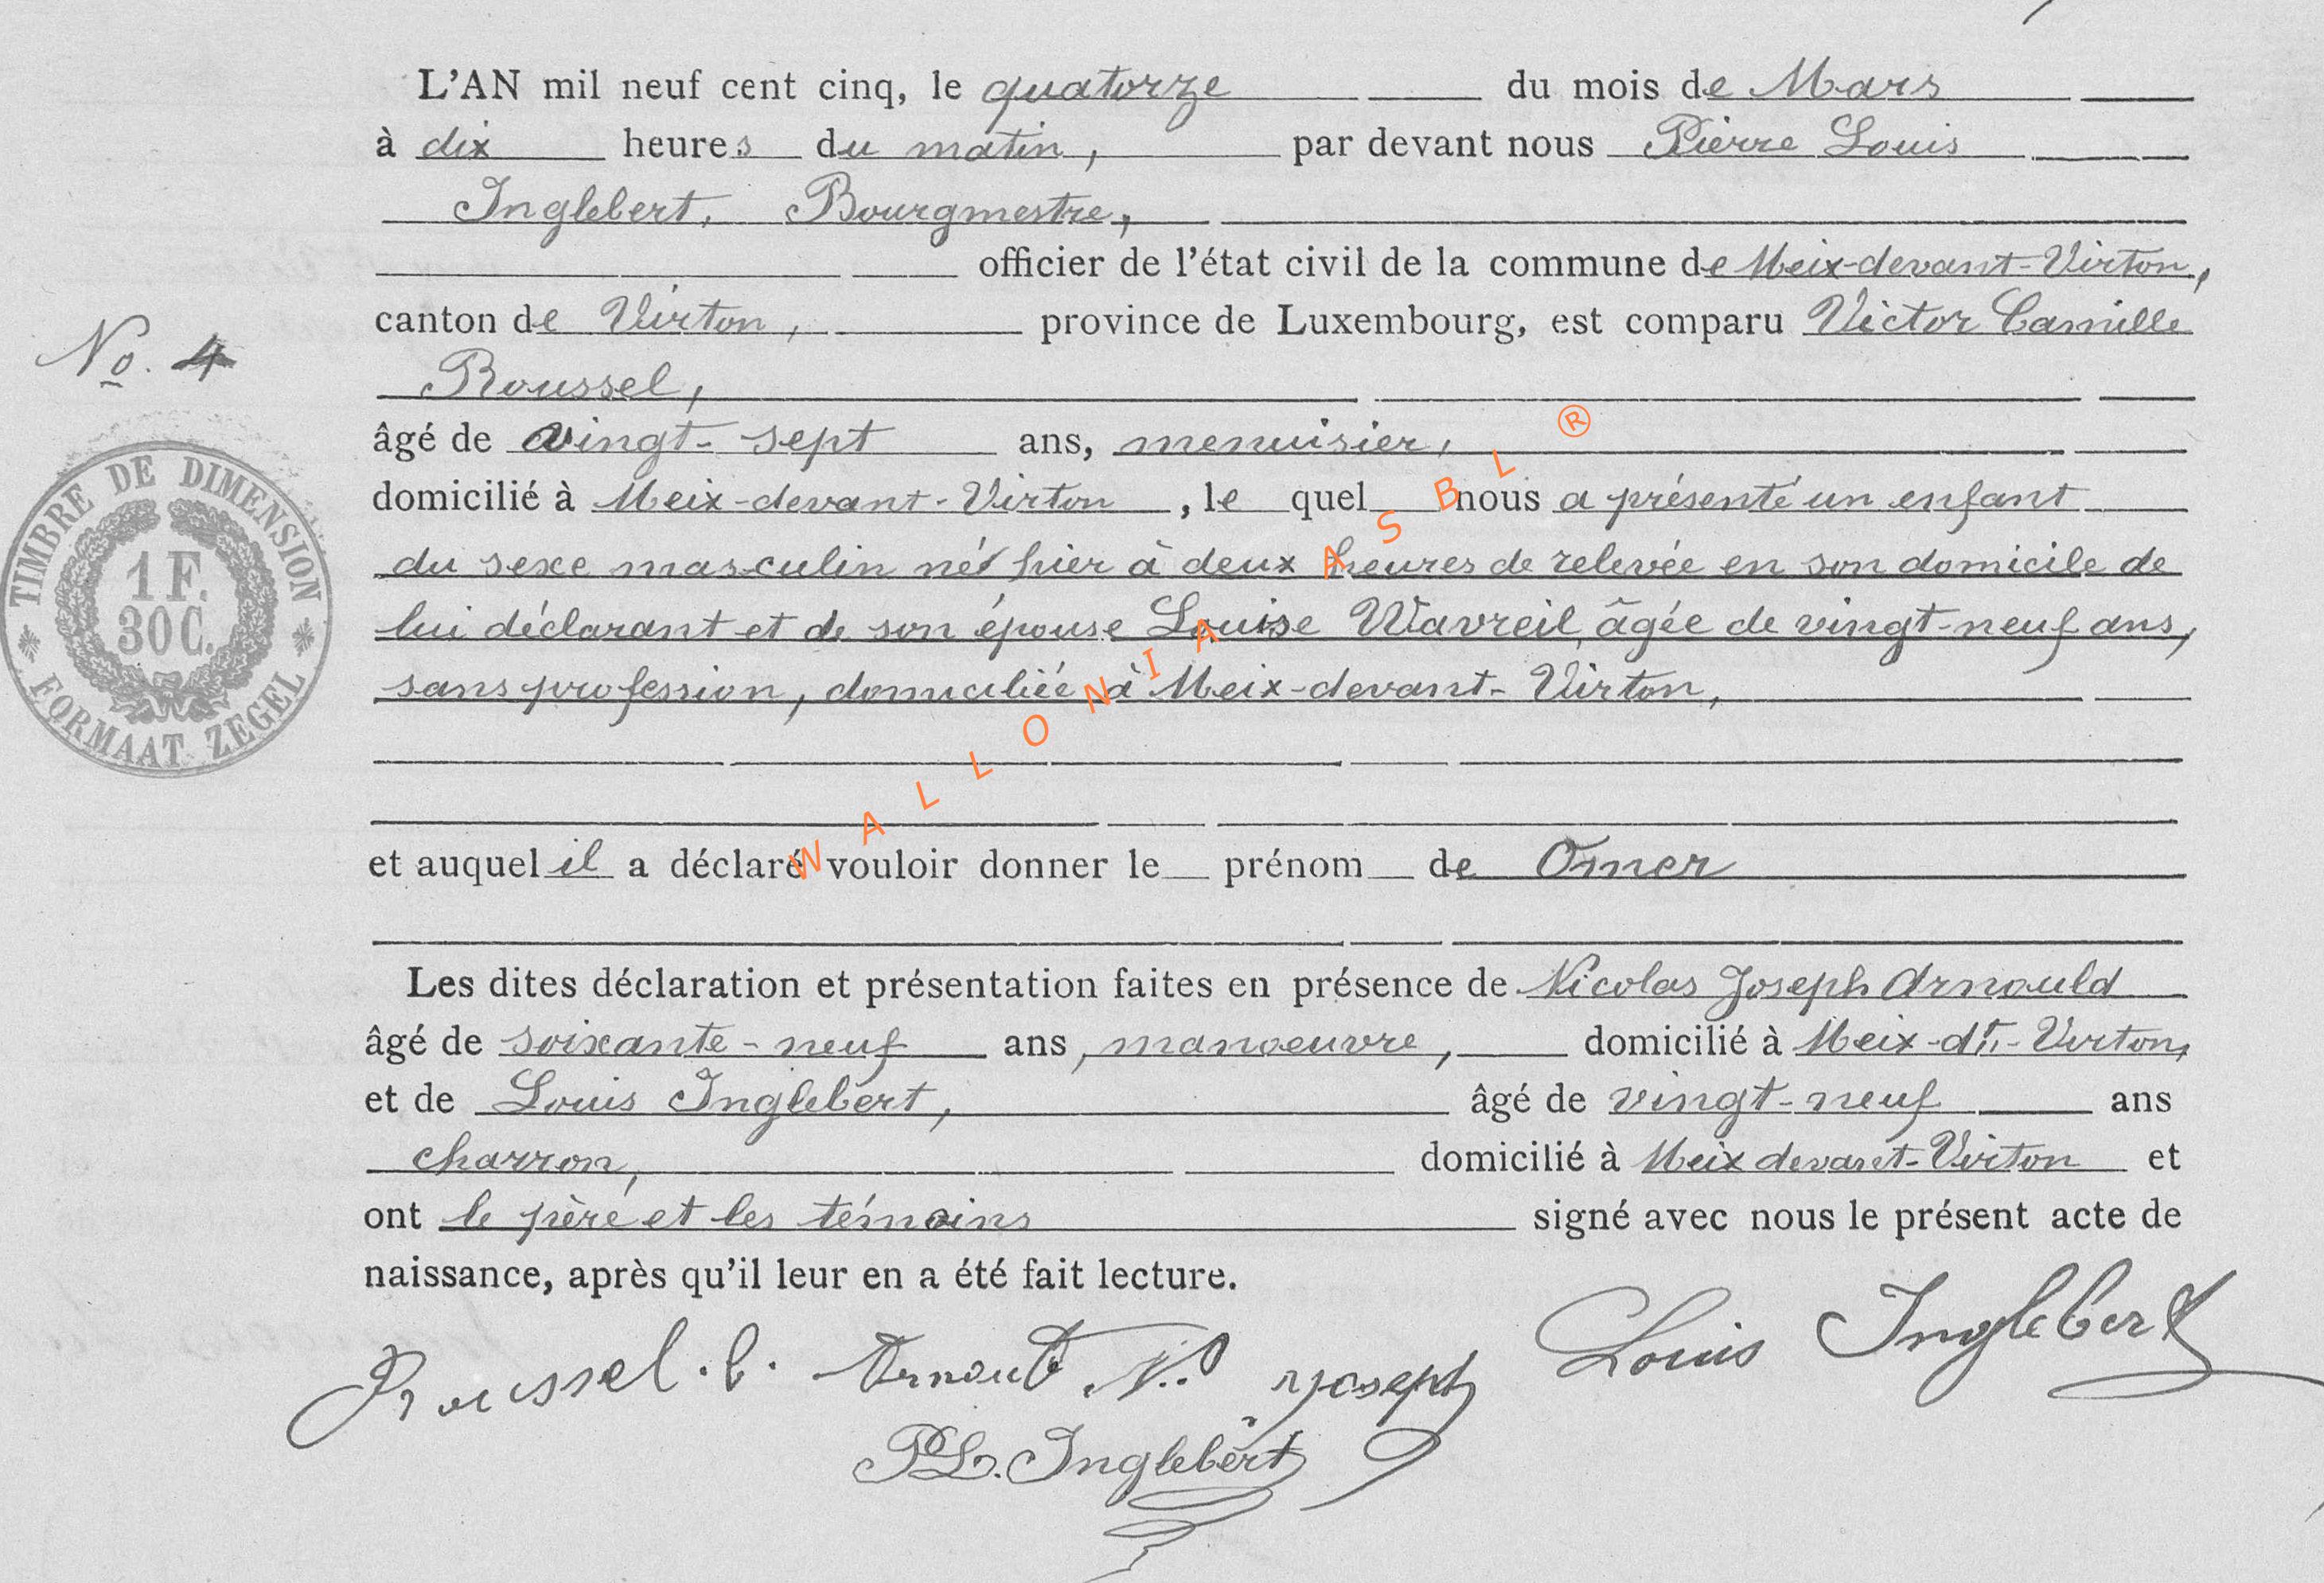 L'AN mil neuf cent cinq, le quatorze du mois de Mars
à dix heures du matin, par devant nous Pierre Louis
Inglebert, Bourgmestre,
officier de l'état civil de la commune de Meix-devant-Virton,
canton de Virton, province de Luxembourg, est comparu Victor Camille
Roussel,
No. 4
âgé de vingt-sept ans, menuisier,
domicilié à Meix-devant-Virton, le quel nous a présenté un enfant
du sexe masculin né hier à deux heures de relevée en son domicile de
lui déclarant et de son épouse Louise Wavreil, âgée de vingt-neuf ans,
sans profession, domiciliée à Meix-devant-Virton,
TIMBRE DE DIMENSION
1 F.
30 C.
FORMAAT ZEGEL
WALLONIA ASBL ®
et auquel il a déclaré vouloir donner le prénom de Omer
Les dites déclaration et présentation faites en présence de Nicolas Joseph Arnould
âgé de soixante-neuf ans, manoeuvre, domicilié à Meix-dt.-Virton,
et de Louis Inglebert, âgé de vingt-neuf ans
charron, domicilié à Meix devant-Virton et
ont le père et les témoins signé avec nous le présent acte de
naissance, après qu'il leur en a été fait lecture.
Roussel. C. Arnould N. Joseph Louis Inglebert
PL. Inglebert